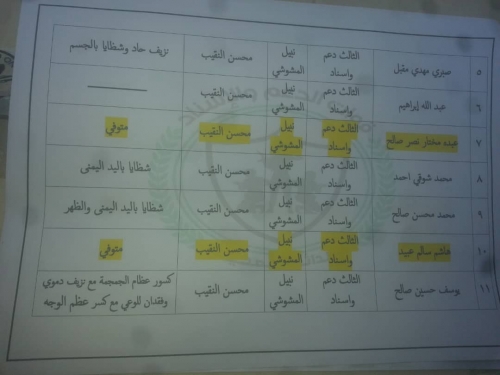 ٥ صبري مهدي مقبل الثالث دعم واسناد نبيل المشوشي محسن النقيب نزيف حاد وشظايا بالجسم
٦ عبد الله إبراهيم الثالث دعم واسناد نبيل المشوشي محسن النقيب
٧ عبده مختار نصر صالح الثالث دعم واسناد نبيل المشوشي محسن النقيب متوفي
٨ محمد شوقي احمد الثالث دعم واسناد نبيل المشوشي محسن النقيب شظايا باليد اليمنى
٩ محمد محسن صالح الثالث دعم واسناد نبيل المشوشي محسن النقيب شظايا باليد اليمنى والظهر
١٠ هاشم سالم عبيد الثالث دعم واسناد نبيل المشوشي محسن النقيب متوفي
١١ يوسف حسين صالح الثالث دعم واسناد نبيل المشوشي محسن النقيب كسور عظام الجمجمة مع نزيف دموي وفقدان للوعي مع كسر عظم الوجه